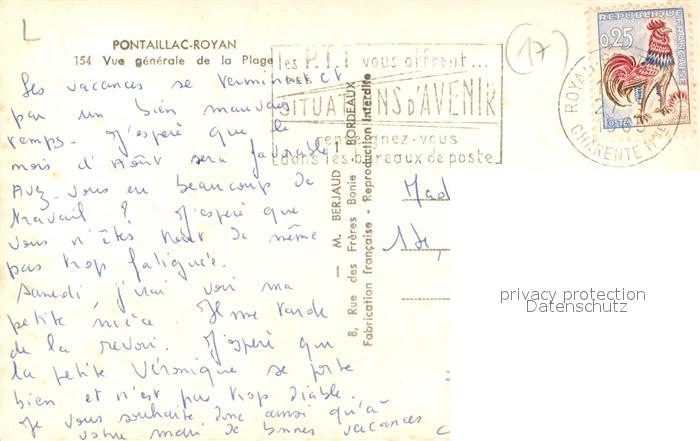 PONTAILLAC-ROYAN
154 Vue générale de la Plage
Les vacances se terminent et
par un bien mauvais
temps. J'espère que le
mois d'Août sera favorable.
Avez-vous eu beaucoup de
travail ? J'espère que
vous n'êtes tout de même
pas trop fatiguée.
Samedi, j'irai voir ma
petite nièce. Il me tarde
de la revoir. J'espère que
la petite Véronique se porte
bien et n'est pas trop diable.
Je vous souhaite donc ainsi qu'à
votre mari de bonnes vacances
les P.T.T vous offrent...
DES
SITUATIONS D'AVENIR
renseignez-vous
dans les bureaux de poste
— M. BERJAUD — BORDEAUX
8, Rue des Frères Bonie
Fabrication française - Reproduction interdite
17
REPUBLIQUE FRANÇAISE
0,25
POSTES
ROYAN
CHARENTE Mme
Mad
1 de,
privacy protection
Datenschutz